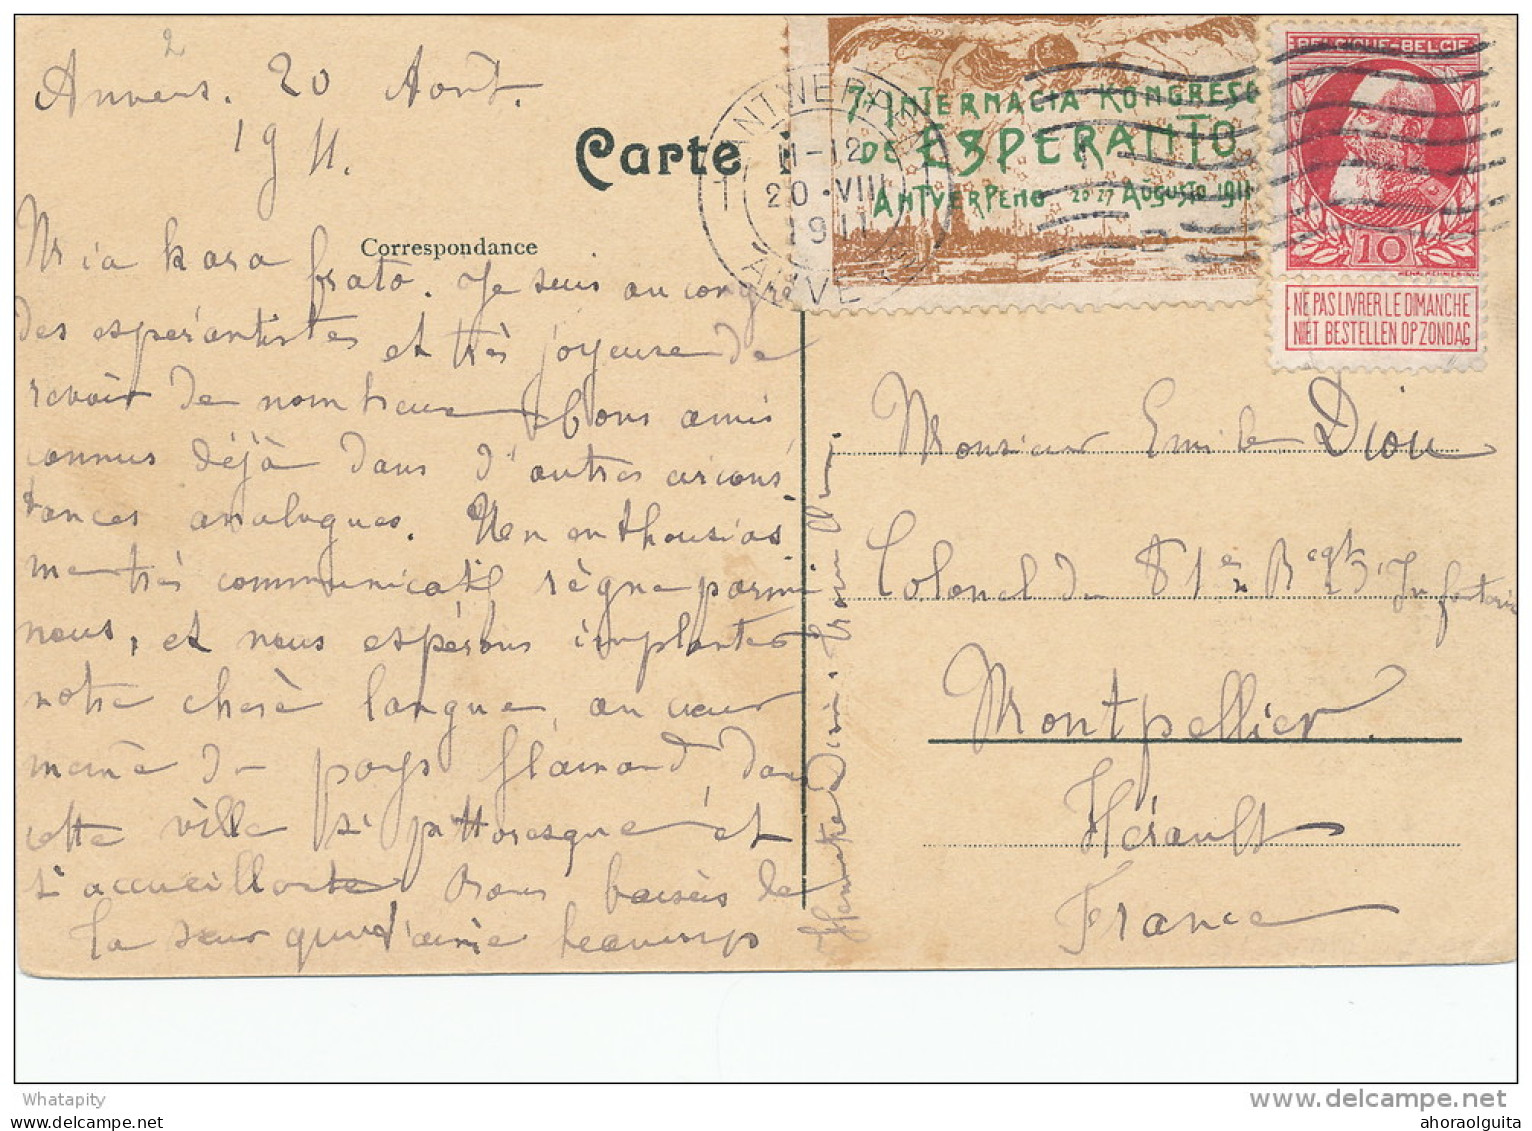 Anvers. 20 Août.
1911.
Carte
Correspondance
Mia kara frato. Je suis au congrès
des espérantistes et très joyeuse de
revoir de nombreux bons amis
connus déjà dans d'autres circons
tances analogues. Un enthousias
me très communicatif règne parmi
nous, et nous espérons implanter
notre chère langue, au cœur
même du pays flamand, dans
cette ville si pittoresque et
si accueillante. Bons baisers de
la sœur qui t'aime beaucoup
ANTWERPEN
1
11-12
20 .VIII
1911
ANVERS
7A INTERNACIA KONGRESO
DE ESPERANTO
ANTVERPENO 20-27 AUGUSTO 1911
BELGIQUE-BELGIE
10
NE PAS LIVRER LE DIMANCHE
NIET BESTELLEN OP ZONDAG
Monsieur Emile Diou
Colonel du 81e Regt d'Infanterie
Montpellier
Hérault
France
Whatapity
delcampe.net
ahora@12.com
ahoraolguita